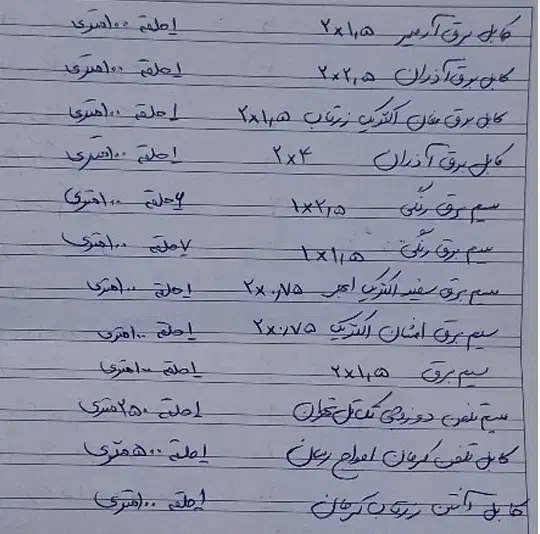 کابل برق آدمیر ۲×۱,۵ ۱حلقه ۱۰۰متری
کابل برق آذران ۲×۲,۵ ۱حلقه ۱۰۰متری
کابل برق مغان الکتریک زرتاب ۲×۱,۵ ۱حلقه ۱۰۰متری
کابل برق آذران ۲×۴ ۱حلقه ۱۰۰متری
سیم برق رنگی ۱×۲,۵ ۶حلقه ۱۰۰متری
سیم برق رنگی ۱×۱,۵ ۷حلقه ۱۰۰متری
سیم برق سفید الکتریک ابهر ۲×۰,۷۵ ۱حلقه ۱۰۰متری
سیم برق افشان الکتریک ۲×۰,۷۵ ۱حلقه ۱۰۰متری
سیم برق ۲×۱,۵ ۱حلقه ۱۰۰متری
سیم تلفن دو زوجی تک تل تهران ۱حلقه ۲۵۰متری
کابل تلفن کرمان امواج رسان ۱حلقه ۵۰۰متری
کابل آنتن زرتاب کرمان ۱حلقه ۱۰۰متری